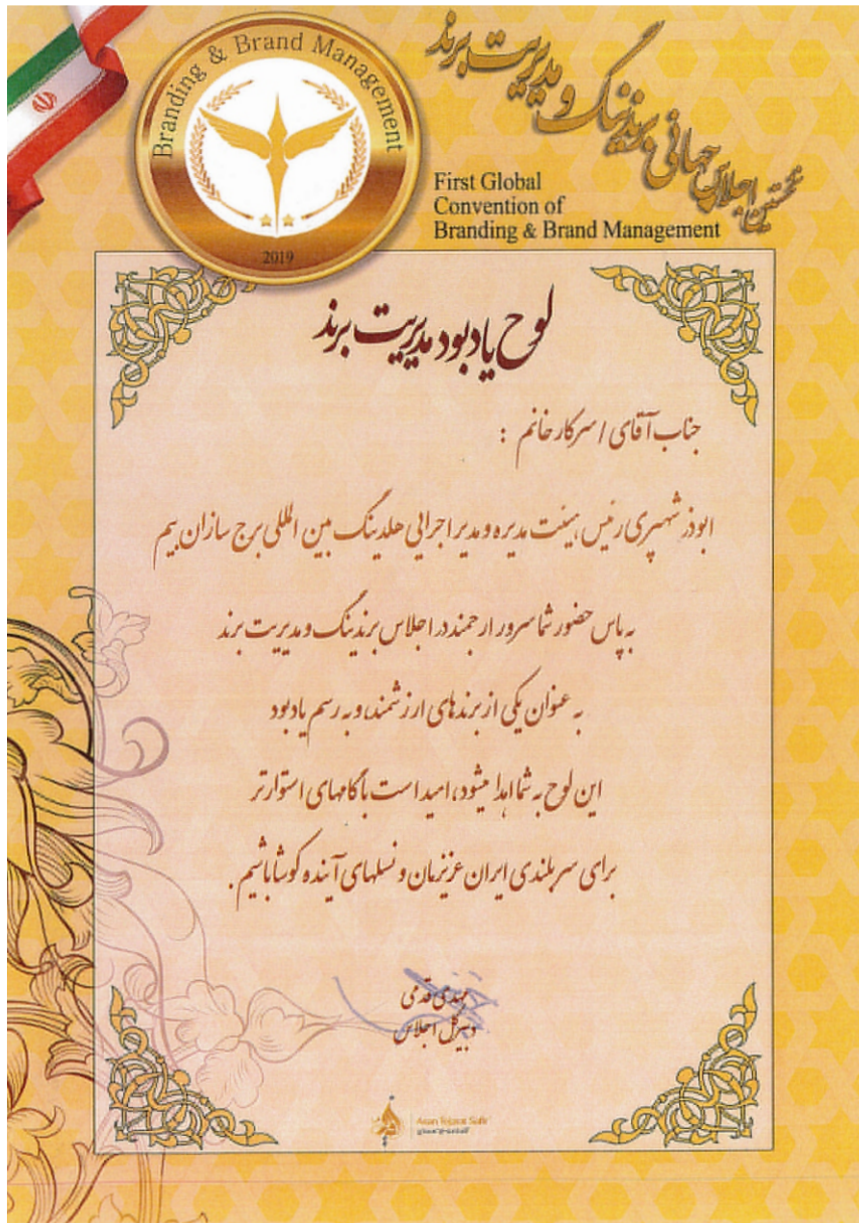 Branding & Brand Management
2019
نخستین اجلاس جهانی برندینگ و مدیریت برند
First Global
Convention of
Branding & Brand Management
لوح یادبود مدیریت برند
جناب آقای / سرکار خانم :
ابوذر شهپری رئیس هیئت مدیره و مدیر اجرایی هلدینگ بین المللی برج سازان بیم
به پاس حضور شما سرور ارجمند در اجلاس برندینگ و مدیریت برند
به عنوان یکی از برندهای ارزشمند، و به رسم یادبود
این لوح به شما اهدا میشود، امید است با گامهای استوارتر
برای سربلندی ایران عزیزمان و نسلهای آینده کوشا باشیم.
مهدی قدمی
دبیر کل اجلاس
Asan Tejarat Safir